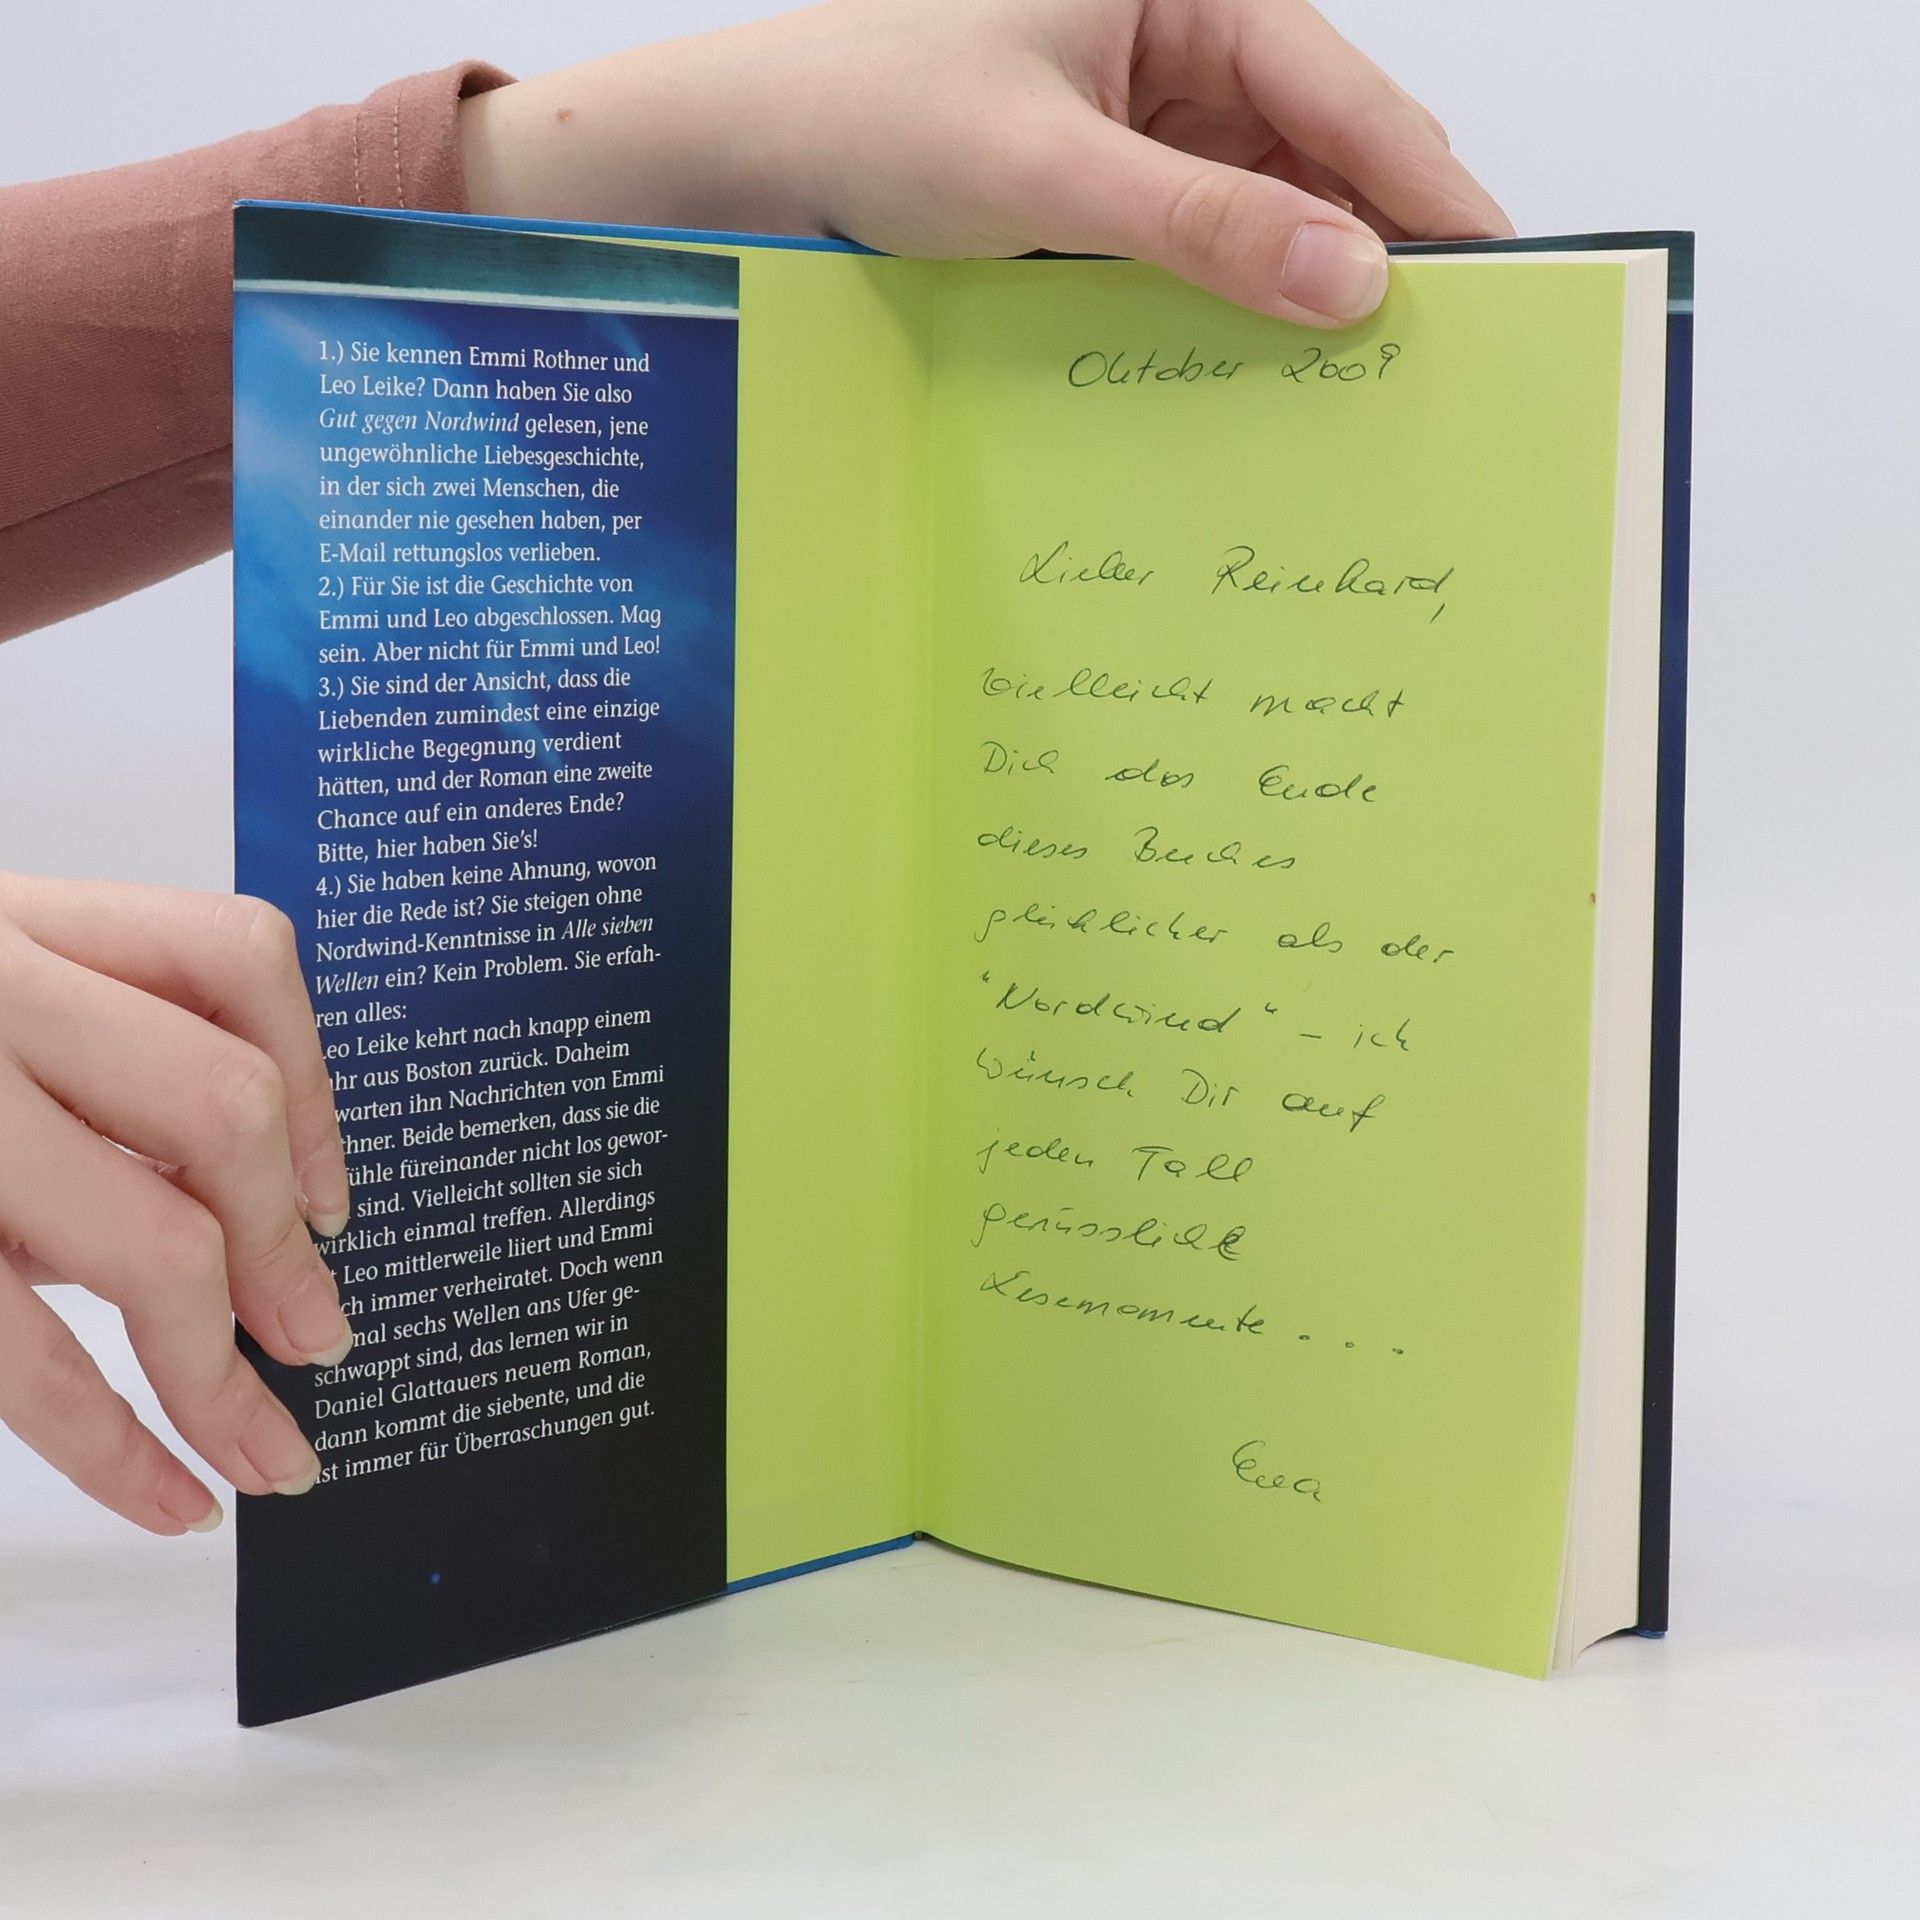 1.) Sie kennen Emmi Rothner und
Leo Leike? Dann haben Sie also
Gut gegen Nordwind gelesen, jene
ungewöhnliche Liebesgeschichte,
in der sich zwei Menschen, die
einander nie gesehen haben, per
E-Mail rettungslos verlieben.
2.) Für Sie ist die Geschichte von
Emmi und Leo abgeschlossen. Mag
sein. Aber nicht für Emmi und Leo!
3.) Sie sind der Ansicht, dass die
Liebenden zumindest eine einzige
wirkliche Begegnung verdient
hätten, und der Roman eine zweite
Chance auf ein anderes Ende?
Bitte, hier haben Sie's!
4.) Sie haben keine Ahnung, wovon
hier die Rede ist? Sie steigen ohne
Nordwind-Kenntnisse in Alle sieben
Wellen ein? Kein Problem. Sie erfah-
ren alles:
Leo Leike kehrt nach knapp einem
hr aus Boston zurück. Daheim
warten ihn Nachrichten von Emmi
thner. Beide bemerken, dass sie die
ühle füreinander nicht los gewor-
sind. Vielleicht sollten sie sich
wirklich einmal treffen. Allerdings
t Leo mittlerweile liiert und Emmi
ch immer verheiratet. Doch wenn
mal sechs Wellen ans Ufer ge-
schwappt sind, das lernen wir in
Daniel Glattauers neuem Roman,
dann kommt die siebente, und die
ist immer für Überraschungen gut.
Oktober 2009
Lieber Reinhard,
vielleicht macht
Dich das Ende
dieses Buches
glücklicher als der
"Nordwind" - ich
wünsch Dir auf
jeden Fall
genüssliche
Lesemomente...
Eva